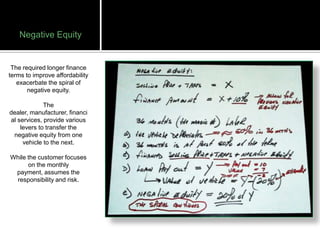 Negative Equity
The required longer finance
terms to improve affordability
exacerbate the spiral of
negative equity.
The
dealer, manufacturer, financi
al services, provide various
levers to transfer the
negative equity from one
vehicle to the next.
While the customer focuses
on the monthly
payment, assumes the
responsibility and risk.
NEGATIVE EQUITY:
SELLING PRICE + TAXES = X
FINANCE AMOUNT = X + 10%
36 MONTHS LATER
a) THE VEHICLE DEPRECIATES
b) 36 MONTHS IS AT
c) FINANCES SELLING PRICE + TAXES + NEGATIVE EQUITY
d) LOAN PAY OUT = Y
VALUE OF VEHICLE = Y - 20%
e) NEGATIVE EQUITY = 20% of Y
THE SPIRAL CONTINUES